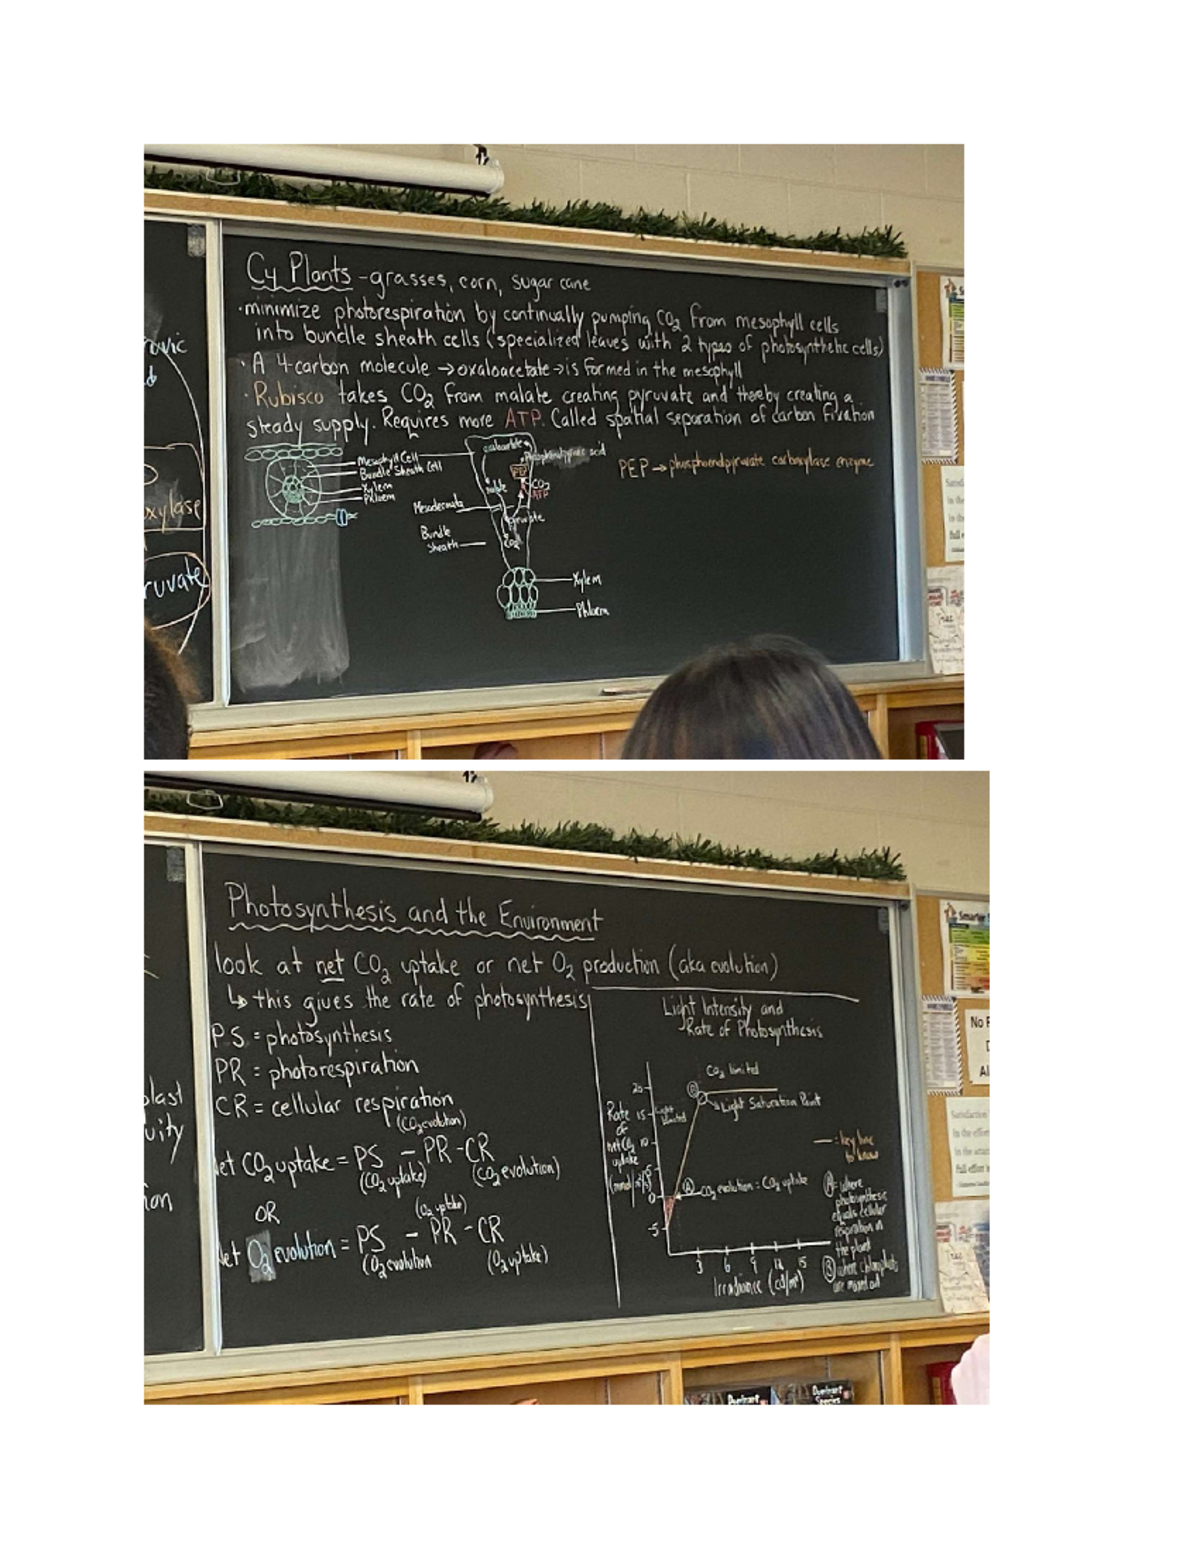 C4 Plants - grasses, corn, sugar cane
• minimize photorespiration by continually pumping CO2 from mesophyll cells
into bundle sheath cells (specialized leaves with 2 types of photosynthetic cells)
• A 4-carbon molecule → oxaloacetate → is formed in the mesophyll
• Rubisco takes CO2 from malate creating pyruvate and thereby creating a
steady supply. Requires more ATP. Called spatial separation of carbon fixation
Mesophyll Cell
Bundle Sheath Cell
Xylem
Phloem
PEP
CO2
ATP
malate
pyruvate
CO2
Bundle
Sheath
Xylem
Phloem
PEP → carboxylase enzyme
oxylase
ruvate
Photosynthesis and the Environment
look at net CO2 uptake or net O2 production (aka evolution)
↳ this gives the rate of photosynthesis
PS = photosynthesis
PR = photorespiration
CR = cellular respiration
(CO2 evolution)
Net CO2 uptake = PS - PR - CR
(CO2 uptake) (CO2 evolution)
OR
(O2 uptake)
Net O2 evolution = PS - PR - CR
(O2 evolution (O2 uptake)
Light Intensity and
Rate of Photosynthesis
CO2 limited
20
B
Light Saturation Point
Rate 15
of
net CO2 10
uptake
5
0
-5
A CO2 evolution = CO2 uptake
3 6 9 12 15
Irradiance (cd/m²)
= key line
to know
A = where
photosynthesis
equals cellular
respiration in
the plant
B where
are maxed out
plast
vity
ion